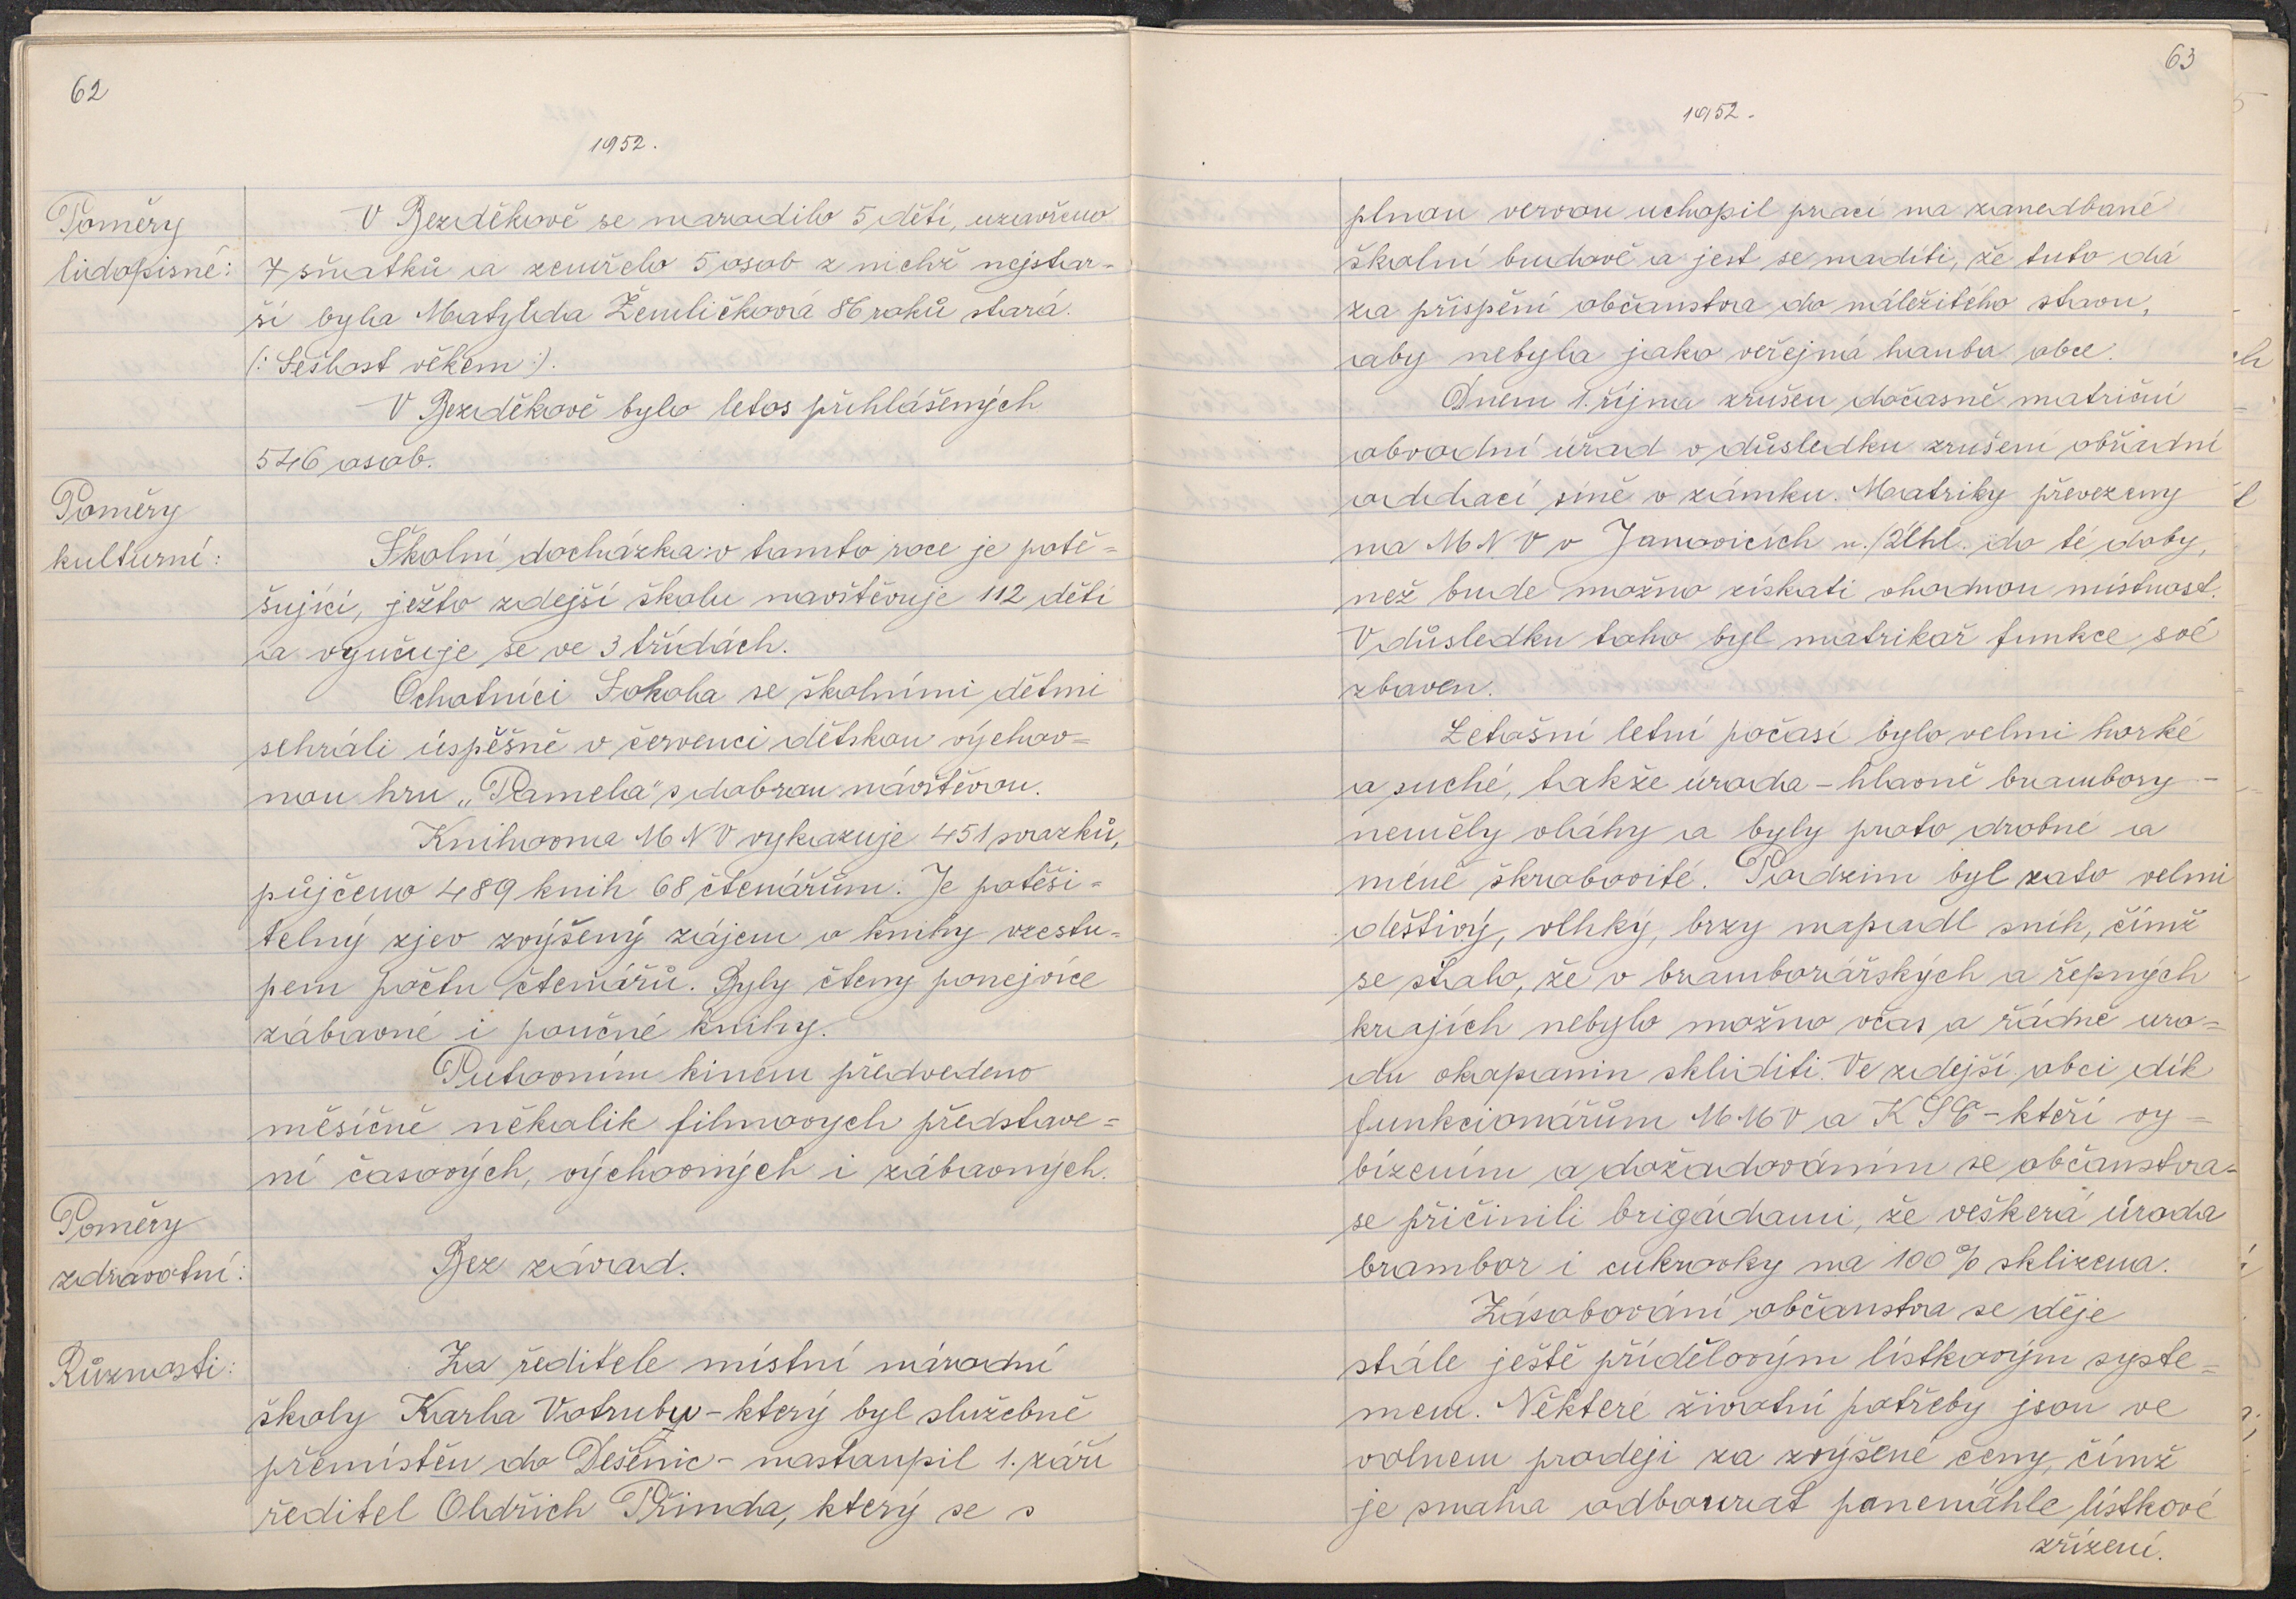 62
1952.
Poměry
lidopisné:
V Bezděkově se narodilo 5 dětí, uzavřeno
7 sňatků a zemřelo 5 osob z nichž nejstar-
ší byla Matylda Žemličková 86 roků stará.
(: Sešlost věkem :).
V Bezděkově bylo letos přihlášených
546 osob.
Poměry
kulturní:
Školní docházka: v tomto roce je potě=
šující, ježto zdejší školu navštěvuje 112 dětí
a vyučuje se ve 3 třídách.
Ochotníci Sokola se školními dětmi
sehráli úspěšně v červenci dětskou výchov=
nou hru „Pamela" s dobrou návštěvou.
Knihovna MNV vykazuje 451 svazků,
půjčeno 489 knih 68 čtenářům. Je potěši=
telný zjev zvýšený zájem o knihy vzestu=
pem počtu čtenářů. Byly čteny ponejvíce
zábavné i poučné knihy.
Putovním kinem předvedeno
měsíčně několik filmových představe=
ní časových, výchovných i zábavných.
Poměry
zdravotní:
Bez závad.
Různosti:
Za ředitele místní národní
školy Karla Votruby - který byl služebně
přemístěn do Dešenic - nastoupil 1. září
ředitel Oldřich Přimda, který se s
63
1952.
plnou vervou uchopil prací na zanedbané
školní budově a jest se nadíti, že tuto dá
za přispění občanstva do náležitého stavu,
aby nebyla jako veřejná hanba obce.
Dnem 1. října zrušen dočasně matriční
obvodní úřad v důsledku zrušení obřadní
oddací síně v zámku. Matriky převezeny
na MNV v Janovicích n./Úhl. do té doby,
než bude možno získati vhodnou místnost.
V důsledku toho byl matrikář funkce své
zbaven.
Letošní letní počasí bylo velmi horké
a suché, takže úroda - hlavně brambory -
neměly vláhy a byly proto drobné a
méně škrobovité. Podzim byl zato velmi
deštivý, vlhký, brzy napadl sníh, čímž
se stalo, že v bramborářských a řepných
krajích nebylo možno včas a řádně úro=
du okopanin skliditi. Ve zdejší obci dík
funkcionářům MNV a KSČ - kteří vy=
bízením a dožadováním se občanstva-
se přičinili brigádami, že veškerá úroda
brambor i cukrovky na 100% sklizena.
Zásobování občanstva se děje
stále ještě přídělovým lístkovým systé=
mem. Některé životní potřeby jsou ve
volném prodeji za zvýšené ceny, čímž
je snaha odbourat ponenáhle lístkové
zřízení.